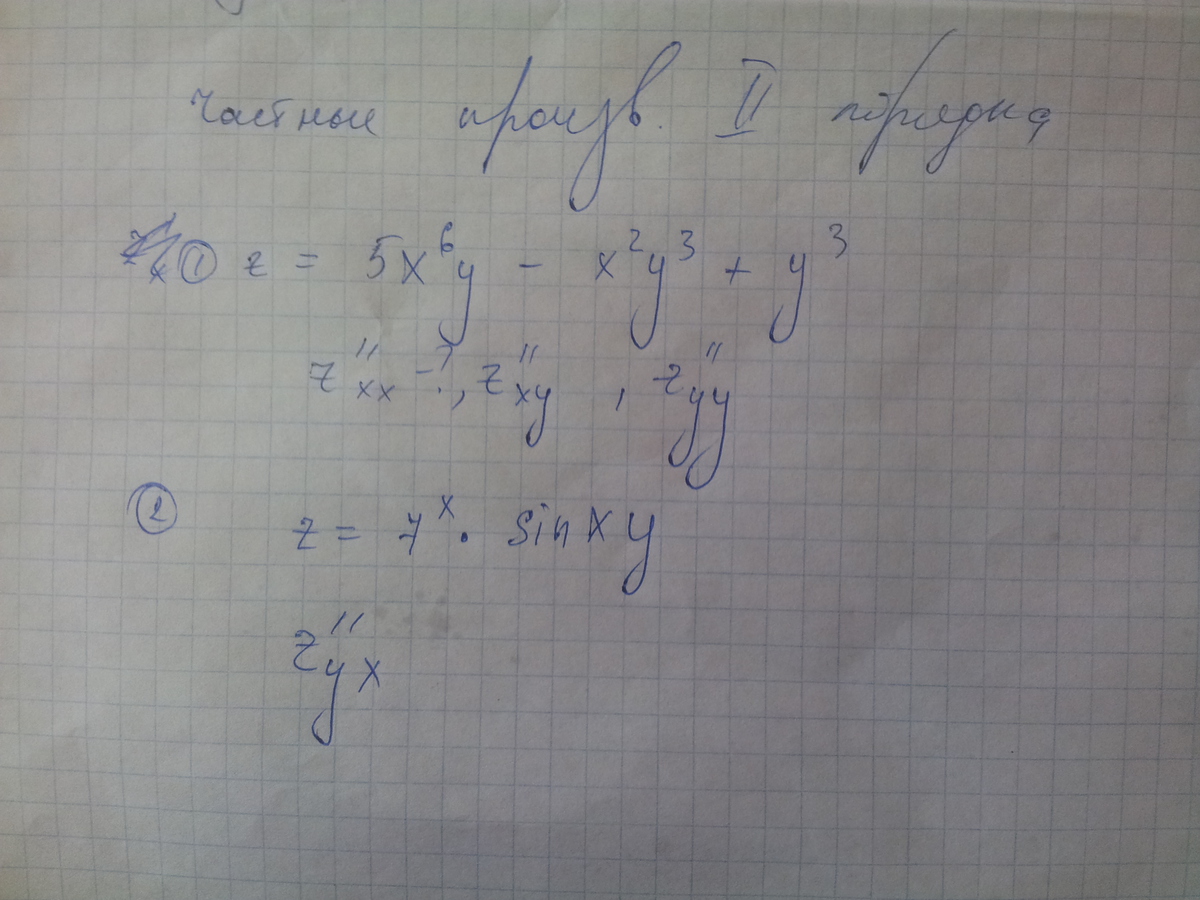 Частные произв. II порядка
① z = 5x⁶y - x²y³ + y³
z''xx - ?, z''xy , z''yy
② z = 7ˣ · sin xy
z''yx